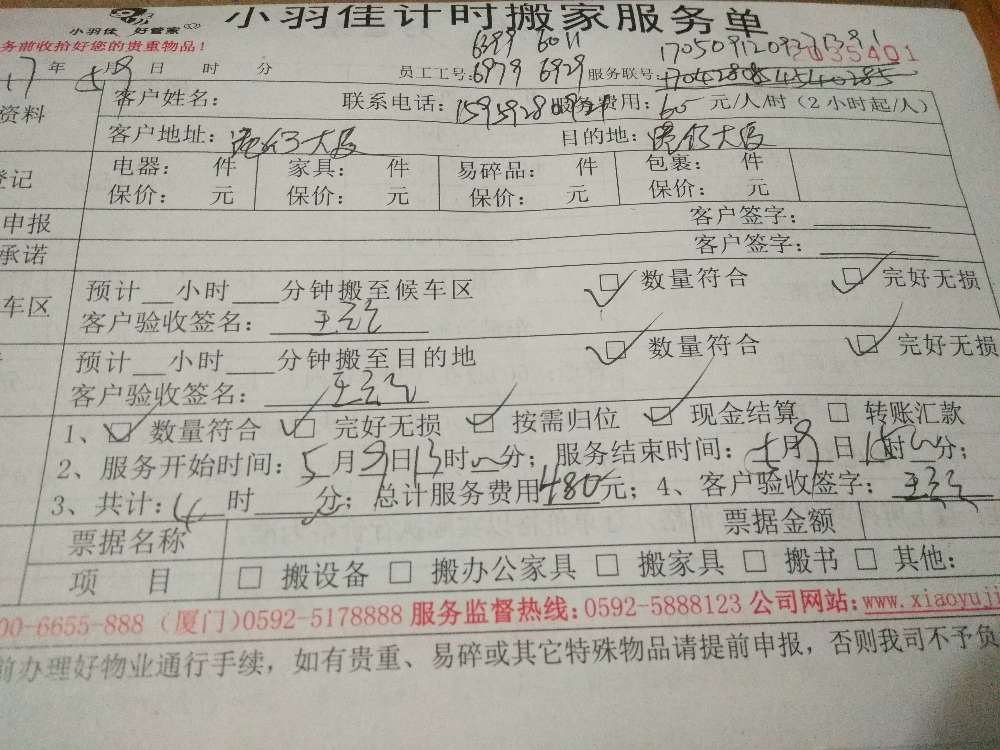 小羽佳计时搬家服务单
小羽佳 好管家
务前收拾好您的贵重物品!
6399 6011
17年5月9日 时 分 员工工号: 6979 6929 服务联号:
资料 客户姓名: 联系电话: 服务费用: 60 元/人/时(2小时起/人)
客户地址: 大厦 目的地: 大厦
登记 电器: 件 家具: 件 易碎品: 件 包裹: 件
保价: 元 保价: 元 保价: 元 保价: 元
申报 客户签字:
承诺 客户签字:
车区 预计 小时 分钟搬至候车区 数量符合 完好无损
客户验收签名:
预计 小时 分钟搬至目的地 数量符合 完好无损
客户验收签名:
1、 数量符合 完好无损 按需归位 现金结算 转账汇款
2、服务开始时间: 5月9日13时 分; 服务结束时间: 5月9日 时 分;
3、共计: 4时 分; 总计服务费用480元; 4、客户验收签字:
票据名称 票据金额
项 目 搬设备 搬办公家具 搬家具 搬书 其他:
00-6655-888 (厦门)0592-5178888 服务监督热线:0592-5888123 公司网站:www.xiaoyuji
前办理好物业通行手续,如有贵重、易碎或其它特殊物品请提前申报,否则我司不予负